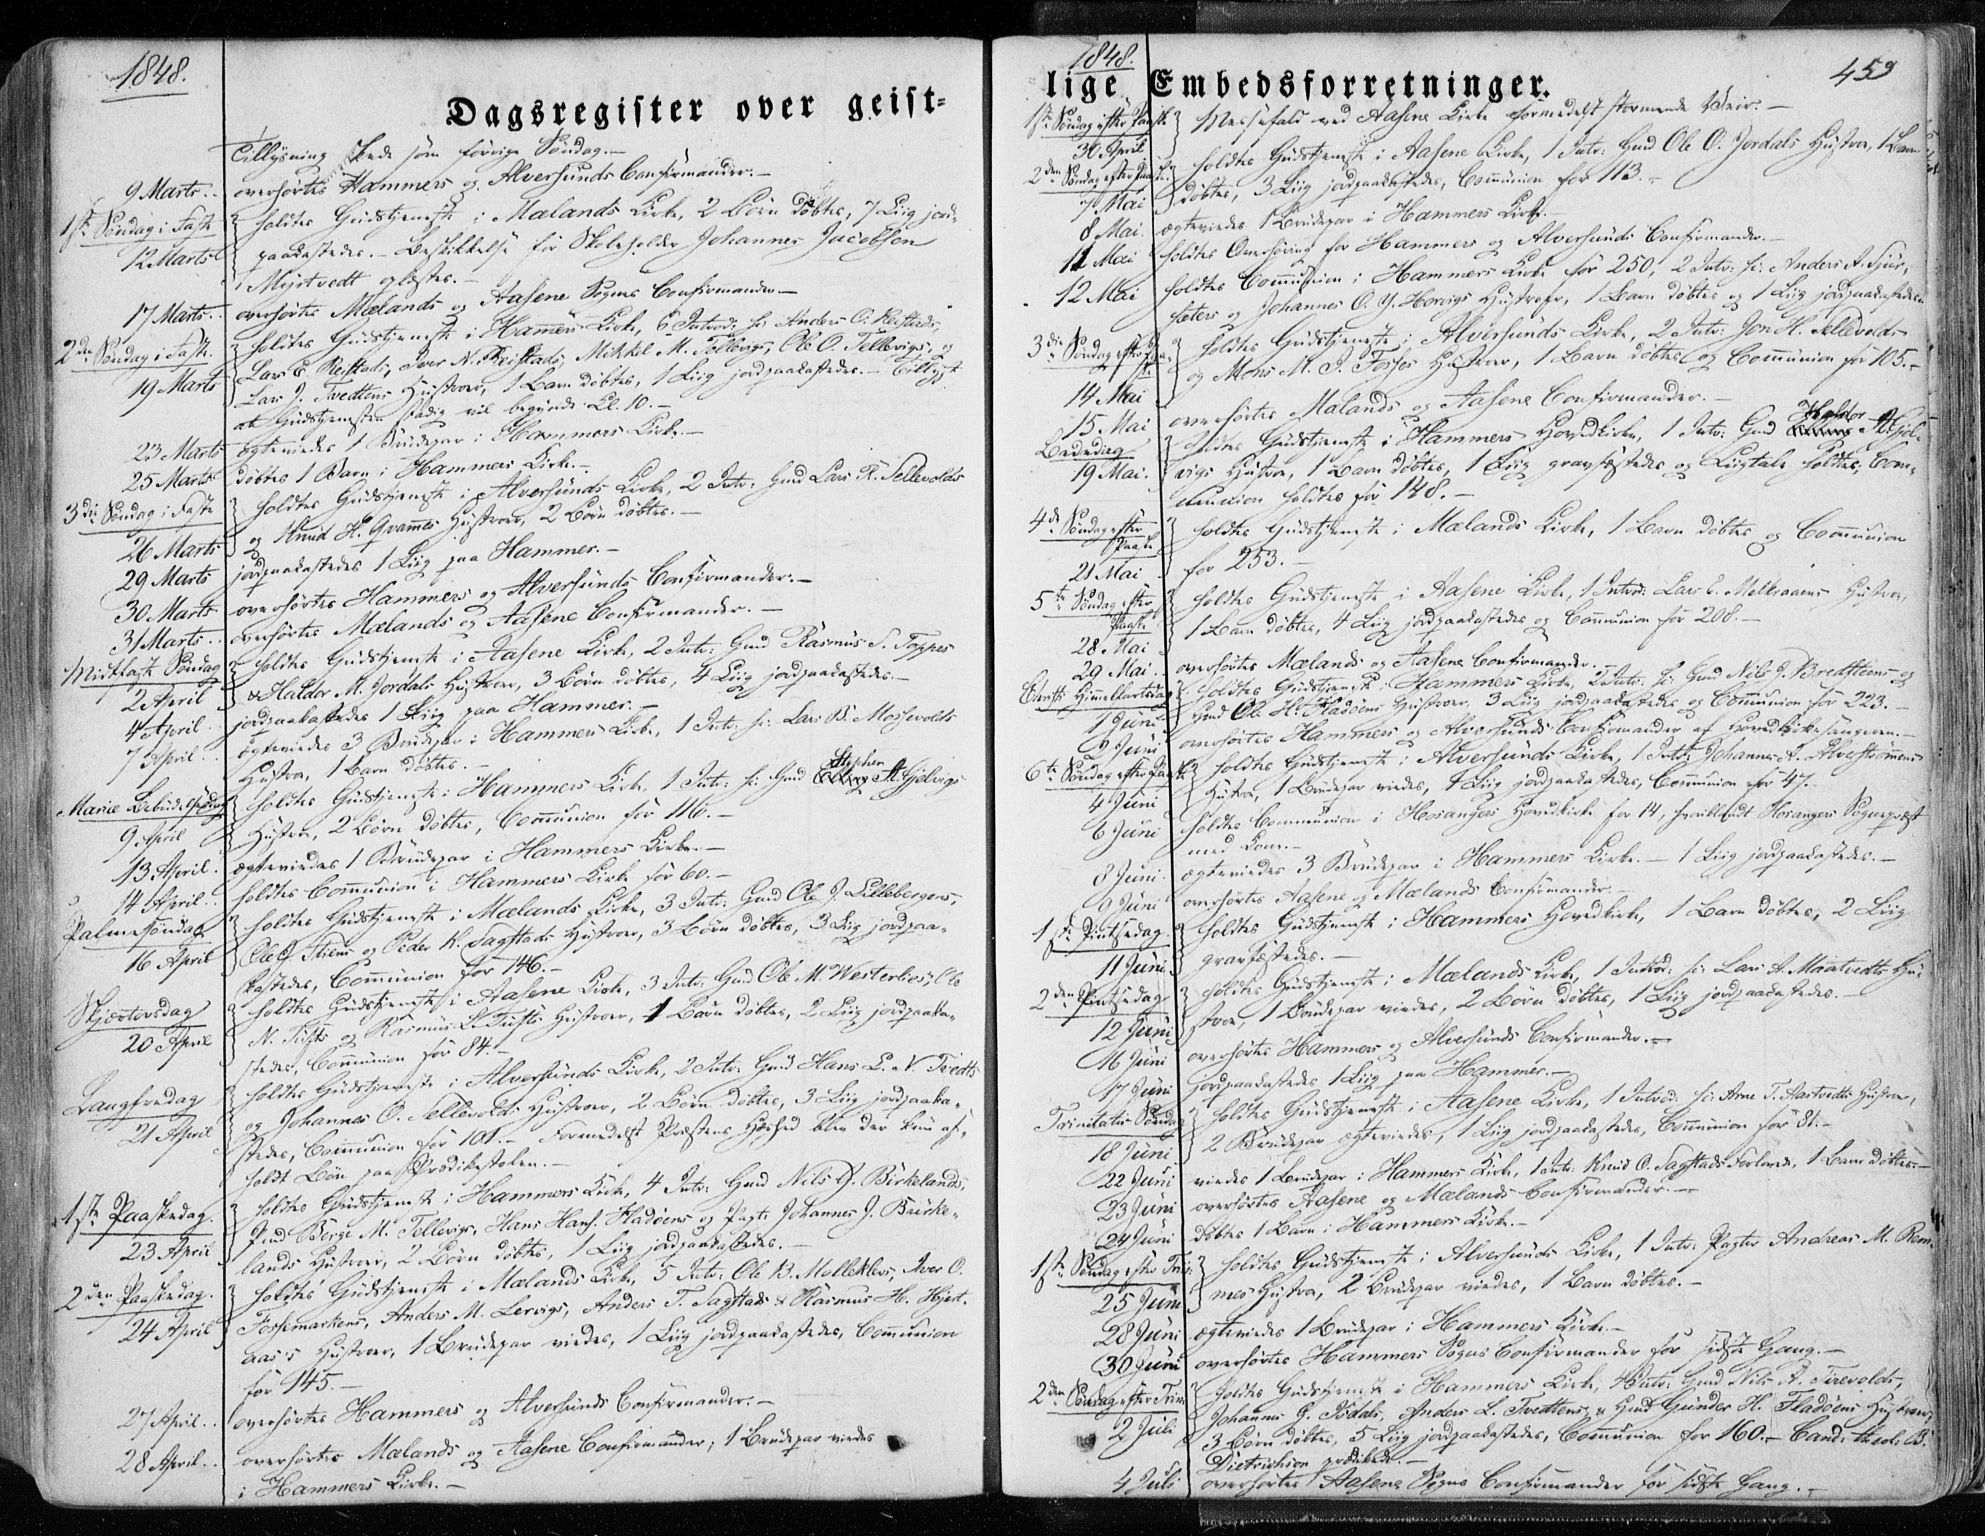 1848.
Dagsregister over geist-
Tillysning skede som forrige Søndag.-
9 Marts.. overhørtes Hammers og Alversunds Confirmander.-
1ste Søndag i Faste holdtes Gudstjeneste i Mælands Kirke, 2 Børn døbtes, 7 Liig jord-
12 Marts paakastedes.- Beskikkelse for Skoleholder Johannes Jacobsen
Myrtvedt oplæstes.-
17 Marts.. overhørtes Mælands og Aasene Sogns Confirmander.-
2den Søndag i Faste holdtes Gudstjeneste i Hamers Kirke, 6 Introd: fr: Anders O. Reistads,
19 Marts Lars E. Reistads, Iver N. Reistads, Mikkel M. Tellevigs, Ole O. Tellevigs, og
Lars J. Tvedtens Hustroer, 1 Barn døbtes, 1 Liig jordpaakastedes.- Tillyst
at Gudstjenesten stadig vil begynde Kl. 10.-
23 Marts ægteviedes 1 Brudepar i Hammers Kirke.-
25 Marts døbtes 1 Barn i Hammers Kirke.-
3die Søndag i Faste holdtes Gudstjeneste i Alversunds Kirke, 2 Intr: Gmd Lars R. Tellevolds
26 Marts og Knud H. Qvammes Hustroer, 2 Børn døbtes.-
29 Marts jordpaakastedes 1 Liig paa Hammer.-
30 Marts overhørtes Hammers og Alversunds Confirmander.-
31 Marts.. overhørtes Mælands og Aasene Confirmander.-
Midfaste Søndag holdtes Gudstjeneste i Aasene Kirke, 2 Intr: Gmd Rasmus S. Toppes
2 April & Haldor M. Jordals Hustroer, 3 Børn døbtes, 4 Liig jordpaakastedes.-
4 April.. jordpaakastedes 1 Liig paa Hammer.-
7 April.. ægteviedes 3 Brudepar i Hammers Kirke, 1 Intr: fr: Lars B. Mosevolds
Hustro, 1 Barn døbtes.-
Mariæ Bebudelsesdag holdtes Gudstjeneste i Hammers Kirke, 1 Intr: fr: Gmd Stephen A. Gjelvigs
9 April Hustro, 2 Børn døbtes, Communion for 116.-
13 April. ægteviedes 1 Brudepar i Hammers Kirke.-
14 April.. holdtes Communion i Hammers Kirke for 60.-
Palmesøndag holdtes Gudstjeneste i Mælands Kirke, 3 Intr: Gmd Ole J. Lillebergens,
16 April Ole J. Stiens og Peder K. Sagstads Hustroer, 3 Børn døbtes, 3 Liig jordpaa-
kastedes, Communion for 146.-
Skjærtorsdag holdtes Gudstjeneste i Aasene Kirke, 3 Intr: Gmd Ole M. Westerbøs, Ole
20 April N. Tufts og Rasmus L. Tufts Hustroer, 1 Børn døbtes, 2 Liig jordpaaka-
stedes, Communion for 84.-
Langfredag holdtes Gudstjeneste i Alversunds Kirke, 2 Intr: Gmd Hans L. N. Tvedts
21 April og Johannes O. Tellevolds Hustroer, 2 Børn døbtes, 3 Liig jordpaaka-
stedes, Communion for 101.- Formedelst Præstens Hæshed blev der kun af-
holdt Bøn paa Prædikestolen.-
1ste Paaskedag. holdtes Gudstjeneste i Hammers Kirke, 4 Intr: Gmd Nils D. Birkelands,
23 April Jnd Børge M. Tellevigs, Hans Hans. Fladøens og Pagt: Johannes J. Birke-
lands Hustroer, 2 Børn døbtes, 1 Liig jordpaakastedes.-
2den Paaskedag. holdtes Gudstjeneste i Mælands Kirke, 5 Intr: Ole B. Molleklevs, Iver O.
24 April Fossemarkens, Anders M. Lervigs, Anders T. Sagstads & Rasmus H. Hjert-
aas's Hustroer, 1 Brudepar viedes, 1 Liig jordpaakastedes, Communion
for 145.-
27 April.. overhørtes Hammers og Alversunds Confirmander.-
28 April.. overhørtes Mælands og Aasene Confirmander; 1 Brudepar viedes
i Hammers Kirke.-
1848.
459
lige Embedsforretninger.
1ste Søndag efter Paaske Messefald ved Aasene Kirke formedelst stormende Veir.-
30 April
2den Søndag efter Paaske holdtes Gudstjeneste i Aasene Kirke, 1 Intr: Gmd Ole O. Jordals Hustroe, 1 Barn
7 Mai døbtes, 3 Liig jordpaakastedes, Communion for 113.-
8 Mai. ægteviedes 1 Brudepar i Hammers Kirke.-
11 Mai holdtes Overhøring for Hammers og Alversunds Confirmander.-
12 Mai holdtes Communion i Hammers Kirke for 250, 2 Intr: fr: Anders A. Sjur,
sæters og Johannes O. Y. Horvigs Hustroer, 1 Barn døbtes og 1 Liig jordpaakastedes.
3die Søndag efter Paaske holdtes Gudstjeneste i Alversunds Kirke, 2 Intr: Jon H. Tellevolds
14 Mai og Mons M. I. Fosses Hustroer, 1 Barn døbtes og Communion for 105.-
15 Mai overhørtes Mælands og Aasene Confirmander.-
Bededag holdtes Gudstjeneste i Hammers Hovedkirke, 1 Intr: Gmd Haldor A. Gjel-
19 Mai. vigs Hustroe, 1 Barn døbtes, 1 Liig gravfæstedes og Liigtale holdtes, Com-
munion holdtes for 148.-
4de Søndag efter Paaske holdtes Gudstjeneste i Mælands Kirke, 1 Barn døbtes og Communion
21 Mai for 253.-
5te Søndag efter Paaske holdtes Gudstjeneste i Aasene Kirke, 1 Introd: Lars C. Mælkraaens Hustroe,
28 Mai 1 Barn døbtes, 4 Liig jordpaakastedes og Communion for 208.-
29 Mai. overhørtes Mælands og Aasene Confirmander.-
Christi Himmelfartsdag holdtes Gudstjeneste i Hammers Kirke, 2 Intr: fr: Gmd Nils J. Bredsteens og
1 Juni Gmd Ole H. Fladøens Hustroer, 3 Liig jordpaakastedes og Communion for 223.-
2 Juni overhørtes Hammers og Alversunds Confirmander af Hovedkirkesangeren.-
6te Søndag efter Paaske holdtes Gudstjeneste i Alversunds Kirke, 1 Intr: Johannes A. Alverstrømens
4 Juni Hustro, 1 Brudepar viedes, 1 Liig jordpaakastedes, Communion for 47.-
6 Juni holdtes Communion i Hosangers Hovedkirke for 14, hvoriblandt Hosangers Sognepræst
med Kone.-
8 Juni. ægteviedes 3 Brudepar i Hammers Kirke.- 1 Liig jordpaakastedes.-
9 Juni overhørtes Aasene og Mælands Confirmander.-
1ste Pintsedag. holdtes Gudstjeneste i Hammers Hovedkirke, 1 Barn døbtes, 2 Liig
11 Juni gravfæstedes.-
2den Pintsedag holdtes Gudstjeneste i Mælands Kirke, 1 Introd: fr: Lars A. Maatvedts Hu-
12 Juni stroe, 1 Brudepar viedes, 2 Børn døbtes, 1 Liig jordpaakastedes.-
16 Juni overhørtes Hammers og Alversunds Confirmander.-
17 Juni jordpaakastedes 1 Liig paa Hammer.-
Trinitatis Søndag holdtes Gudstjeneste i Aasene Kirke, 1 Introd: fr: Arne T. Hartvedts Hustroe,
18 Juni 2 Brudepar ægteviedes, 1 Liig jordpaakastedes, Communion for 81.-
22 Juni viedes 1 Brudepar i Hammers Kirke, 1 Intr: Knud O. Sagstads Forlovede, 1 Barn døbtes.-
23 Juni overhørtes Aasene og Mælands Confirmander.-
24 Juni døbtes 1 Barn i Hammers Kirke.-
1ste Søndag efter Trin: holdtes Gudstjeneste i Alversunds Kirke, 1 Intr: Pagter Andreas M. Rem-
25 Juni mes Hustroe, 2 Brudepar viedes, 1 Barn døbtes.-
28 Juni ægteviedes 1 Brudepar i Hammers Kirke.-
30 Juni overhørtes Hammers Sogns Confirmander for sidste Gang.-
2den Søndag efter Trin: holdtes Gudstjeneste i Hammers Kirke, 4 Intr: Gmd Nils A. Tirevolds,
2 Juli Johannes G. Isdals, Anders L. Tvedtens, & Gmd Gunder H. Fladøens Hustroer,
3 Børn døbtes, 5 Liig jordpaakastedes, Communion for 160.- Cand: theol: B.
Dietrichson prædikede.-
4 Juli overhørtes Aasene Sogns Confirmander for sidste Gang.-